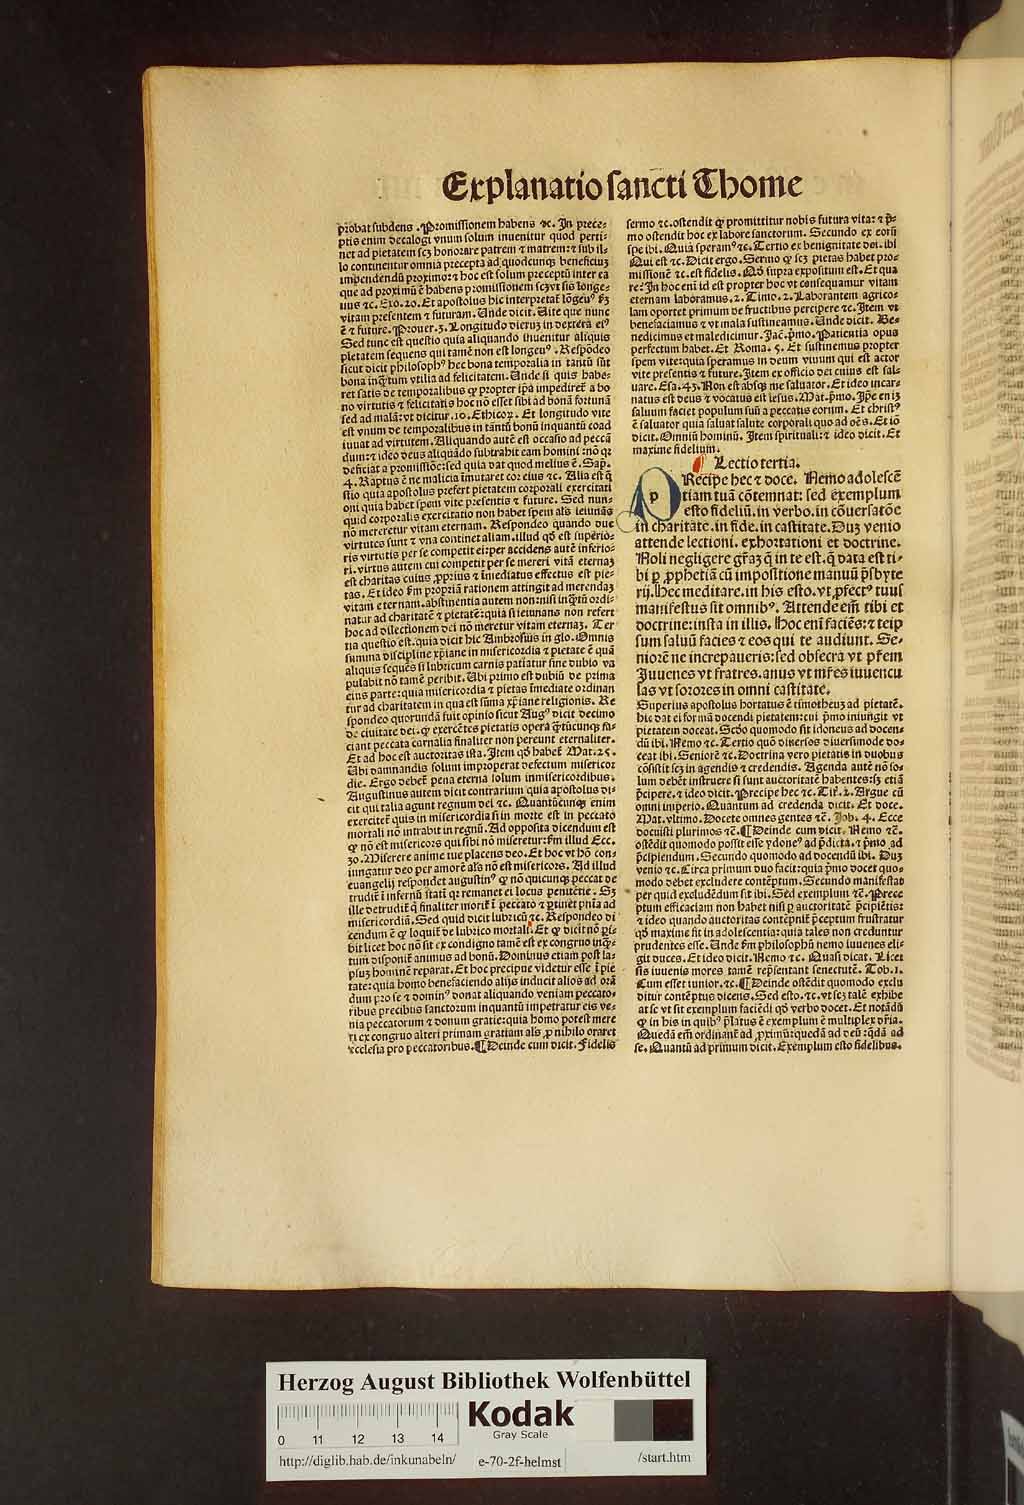 Explanatio sancti Thome
probat subdens . Promissionem habens ⁊c. In prece⸗
ptis enim decalogi vnum solum inuenitur quod perti⸗
net ad pietatem scꝫ honorare patrem ⁊ matrem: ⁊ sub il⸗
lo continentur omnia precepta ad quodcunqꝫ beneficiuꝫ
impendendū proximo: ⁊ hoc est solum preceptū inter ea
que ad proximū ē habens promissionem scꝫ vt sis longe⸗
uus ⁊c. Exo. 20. Et apostolus hic interpretat̄ lōgeuꝰ
vitam presentem ⁊ futuram. Unde dicit. Uite que nunc
ē ⁊ future. Prouer. 3. Longitudo dieruꝫ in dextera eiꝰ
Sed tunc est questio quia aliquando inuenitur aliquis
pietatem sequens qui tamē non est longeuꝰ. Respōdeo
sicut dicit philosophꝰ hec bona temporalia in tantū sūt
bona inqͣtum vtilia ad felicitatem. Unde si quis habe⸗
ret satis de temporalibus ꝙ propter ip̄a impediret̄ a bo
no virtutis ⁊ felicitatis hoc nō esset sibi ad bonā fortunā
sed ad malā: vt dicitur. 10. Ethicoꝝ. Et longitudo vite
est vnum de temporalibus in tantū bonū inquantū coad
iuuat ad virtutem. Aliquando autē est occasio ad peccā
dum: ⁊ ideo deus aliquādo subtrahit eam homini: nō qꝫ
deficiat a promissiōe: sed quia dat quod melius ē. Sap.
4. Raptus ē ne malicia īmutaret cor eius ⁊c. Alia est q̄
stio quia apostolus prefert pietatem corporali exercitati
oni quia habet spem vite presentis ⁊ future. Sed nun⸗
quid corporalis exercitatio non habet spem al̄s ieiunās
nō mereretur vitam eternam. Respondeo quando due
virtutes sunt ⁊ vna continet aliam. illud qd̄ est superio⸗
ris virtutis per se competit ei: per accidens autē inferio⸗
ri. virtus autem cui competit per se mereri vitā eternaꝫ
est charitas cuius ꝓprius ⁊ īmediatus effectus est pie⸗
tas. Et ideo ẜm propriā rationem attingit ad merendaꝫ
vitam eternam. abstinentia autem non: nisi inqͣtū ordi⸗
natur ad charitatē ⁊ pietatē: quia si ieiunans non refert
hoc ad dilectionem dei nō meretur vitam eternaꝫ. Ter
tia questio est. quia dicit hic Ambrosius in glo. Omnis
summa discipline xp̄iane in misericordia ⁊ pietate ē quā
aliquis sequēs si lubricum carnis patiatur sine dubio va
pulabit nō tamē peribit. Ubi primo est dubiū de prima
eius parte: quia misericordia ⁊ pietas īmediate ordinan
tur ad charitatem in qua est sūma xp̄iane religionis. Re
spondeo quorundā fuit opinio sicut Augꝰ dicit decimo
de ciuitate dei. ꝙ exercētes pietatis opera qͣ̄tūcunqꝫ fa⸗
ciant peccata carnalia finaliter non pereunt eternaliter.
Et ad hoc est auctoritas ista. Item qd̄ habet̄ Mat. 25.
Ubi damnandis solum improperat defectum misericor
die. Ergo debet̄ pena eterna solum inmisericordibus.
Augustinus autem dicit contrarium quia apostolus di⸗
cit qui talia agunt regnum dei ⁊c. Quantūcunqꝫ enim
exercitet̄ quis in misericordia si in morte est in peccato
mortali nō intrabit in regnū. Ad opposita dicendum est
ꝙ nō est misericors qui sibi nō miseretur: ẜm illud Ecc.
30. Miserere anime tue placens deo. Et hoc vt hō con⸗
iungatur deo per amorē al̄s nō est misericors. Ad illud
euangelij respondet augustinꝰ ꝙ nō quicunqꝫ peccat de
trudit̄ ī infernū statī qꝫ remanet ei locus penitētie. Sꝫ
ille detrudit̄ q̄ finaliter morit̄ ī peccato ⁊ ꝑtinet pn̄ia ad
misericordiā. Sed quid dicit lubricū ⁊c. Respondeo di
cendum ē ꝙ loquit̄ de lubrico mortali. Et ꝙ dicit nō ꝑi⸗
bit licet hoc nō sit ex condigno tamē est ex congruo inqͣ⸗
tum disponit̄ animus ad bonū. Dominus etiam post la⸗
psuꝫ hominē reparat. Et hoc precipue videtur esse ī pie
tate: quia homo benefaciendo alijs inducit alios ad orā
dum pro se ⁊ dominꝰ donat aliquando veniam peccato⸗
ribus precibus sanctorum inquantū impetratur eis ve⸗
nia peccatorum ⁊ donum gratie: quia homo potest mere
ri ex congruo alteri primam gratiam al̄s ꝓ nihilo oraret
ecclesia pro peccatoribus. ¶ Deinde cum dicit. Fidelis
sermo ⁊c. ostendit ꝙ promittitur nobis futura vita: ⁊ p̄⸗
mo ostendit hoc ex labore sanctorum. Secundo ex eorū
spe ibi. Quia speramꝰ ⁊c. Tertio ex benignitate dei. ibi
Qui est ⁊c. Dicit ergo. Sermo ꝙ scꝫ pietas habet pro⸗
missionē ⁊c. est fidelis. Nō supra expositum est. Et qua
re: In hoc enī id est propter hoc vt consequamur vitam
eternam laboramus. 2. Timo. 2. Laborantem agrico⸗
lam oportet primum de fructibus percipere ⁊c. Item vt
benefaciamus ⁊ vt mala sustineamus. Unde dicit. Be⸗
nedicimus et maledicimur. Jac̄. p̄mo. Patientia opus
perfectum habet. Et Roma. 5. Et sustinemus propter
spem vite: quia speramus in deum viuum qui est actor
vite presentis ⁊ future. Item ex officio dei cuius est sal⸗
uare. Esa. 43. Non est absqꝫ me saluator. Et ideo incar⸗
natus est deus ⁊ vocatus est iesus. Mat. p̄mo. Ip̄e enī
saluum faciet populum suū a peccatis eorum. Et christꝰ
ē saluator quia saluat salute corporali quo ad oēs. Et iō
dicit. Omniū hominū. Item spirituali: ⁊ ideo dicit. Et
maxime fidelium.
Lectio tertia.
PRecipe hec ⁊ doce. Nemo adolescē
tiam tuā cōtemnat: sed exemplum
esto fideliū. in verbo. in cōuersatōe
in charitate. in fide. in castitate. Duꝫ venio
attende lectioni. exhortationi et doctrine.
Noli negligere gr̄aꝫ q̄ in te est. q̄ data est ti⸗
bi ꝑ ꝓphetiā cū impositione manuū p̄sbyte
rij. Hec meditare. in his esto. vt ꝓfectꝰ tuus
manifestus sit omnibꝰ. Attende em̄ tibi et
doctrine: insta in illis. Hoc enī faciēs: ⁊ teip
sum saluū facies ⁊ eos qui te audiunt. Se⸗
niorē ne increpaueris: sed obsecra vt pr̄em
Juuenes vt fratres. anus vt mr̄es iuuencu
las vt sorores in omni castitate.
Superius apostolus hortatus ē timotheuꝫ ad pietatē.
hic dat ei formā docendi pietatem: cui p̄mo iniungit vt
pietatem doceat. Scd̄o quomodo sit idoneus ad docen⸗
dū ibi. Nemo ⁊c. Tertio quō diuersos diuersimode do⸗
ceat ibi. Seniorē ⁊c. Doctrina vero pietatis in duobus
cōsistit scꝫ in agendis ⁊ credendis. Agenda autē nō so⸗
lum debēt instruere si sunt auctoritatē habentes: sꝫ etiā
p̄cipere. ⁊ ideo dicit. Precipe hec ⁊c. Tit̄. 2. Argue cū
omni imperio. Quantum ad credenda dicit. Et doce.
Mat. vltimo. Docete omnes gentes ⁊c̄. Job. 4. Ecce
docuisti plurimos ⁊c̄. ¶ Deinde cum dicit. Nemo ⁊c̄.
ostēdit quomodo possit esse ydoneꝰ ad p̄dicta. ⁊ p̄mo ad
p̄cipiendum. Secundo quomodo ad docendū ibi. Duꝫ
venio ⁊c. Circa primum duo facit: quia p̄mo docet quo⸗
modo debet excludere contēptum. Secundo manifestat
per quid excludēdum sit ibi. Sed exemplum ⁊c̄. Prece
ptum efficaciam non habet nisi ꝑ auctoritatē p̄cipiētis:
⁊ ideo quando auctoritas contēpnit̄ p̄ceptum frustratur
qd̄ maxime fit in adolescentia: quia tales non creduntur
prudentes esse. Unde ẜm philosophū nemo iuuenes eli⸗
git duces. Et ideo dicit. Nemo ⁊c. Quasi dicat. Licet
sis iuuenis mores tamē repn̄sentant senectutē. Tob. 1.
Cum esset iunior. ⁊c. ¶ Deinde ostēdit quomodo exclu
ditur contēptus dicens. Sed esto. ⁊c. vt scꝫ talē exhibe
at se vt sit exemplum faciēdi qd̄ verbo docet. Et notādū
ꝙ in his in quibꝰ p̄latus ē exemplum ē multiplex dr̄ia.
Quedā em̄ ordinant̄ ad ꝓximū: quedā ad eū: qd̄ā ad
se. Quantū ad primum dicit. Exemplum esto fidelibus.
Herzog August Bibliothek Wolfenbüttel
Kodak
Gray Scale
0 11 12 13 14
http://diglib.hab.de/inkunabeln/ e-70-2f-helmst /start.htm